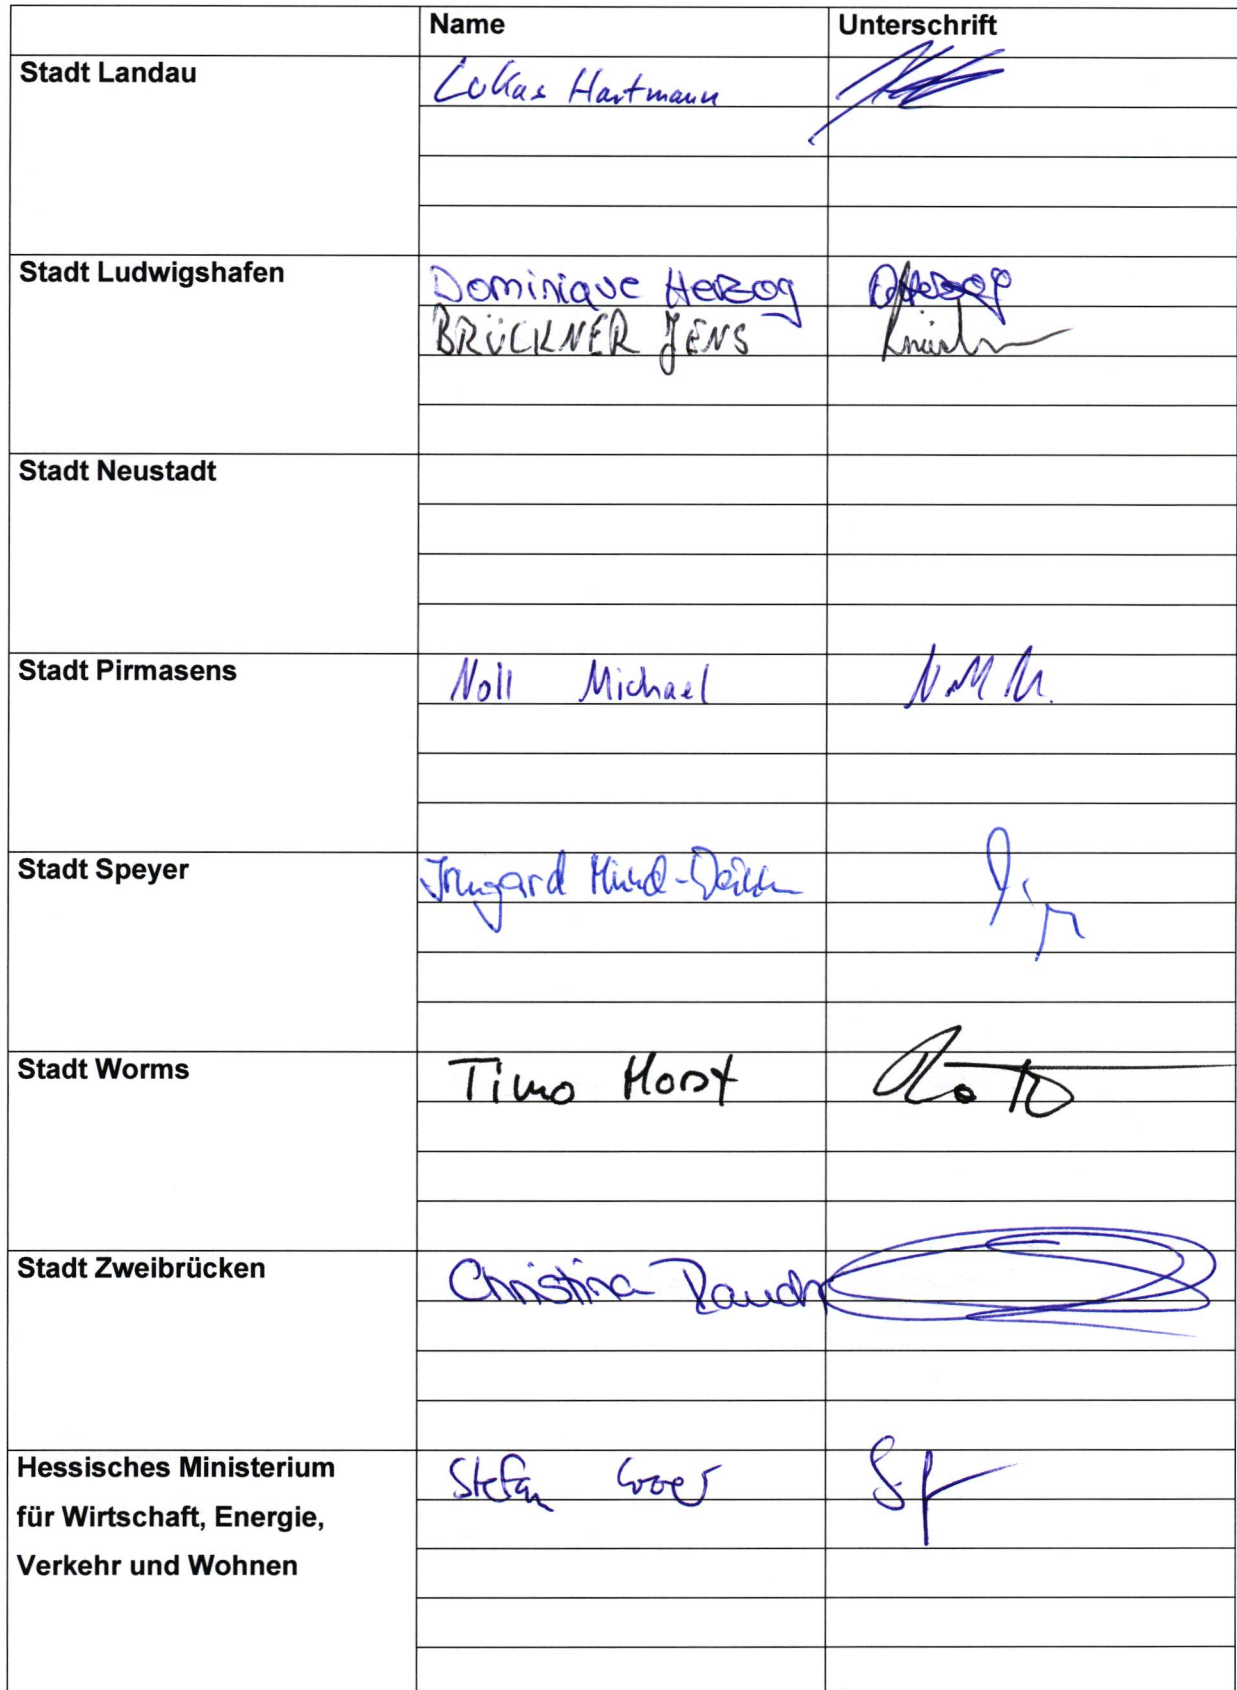 Name Unterschrift
Stadt Landau Lukas Hartmann
Stadt Ludwigshafen Dominique Herzog DHerzog
BRÜCKNER JENS
Stadt Neustadt
Stadt Pirmasens Noll Michael
Stadt Speyer Irmgard
Stadt Worms Timo Horst
Stadt Zweibrücken Christina Rauch
Hessisches Ministerium Stefan
für Wirtschaft, Energie,
Verkehr und Wohnen